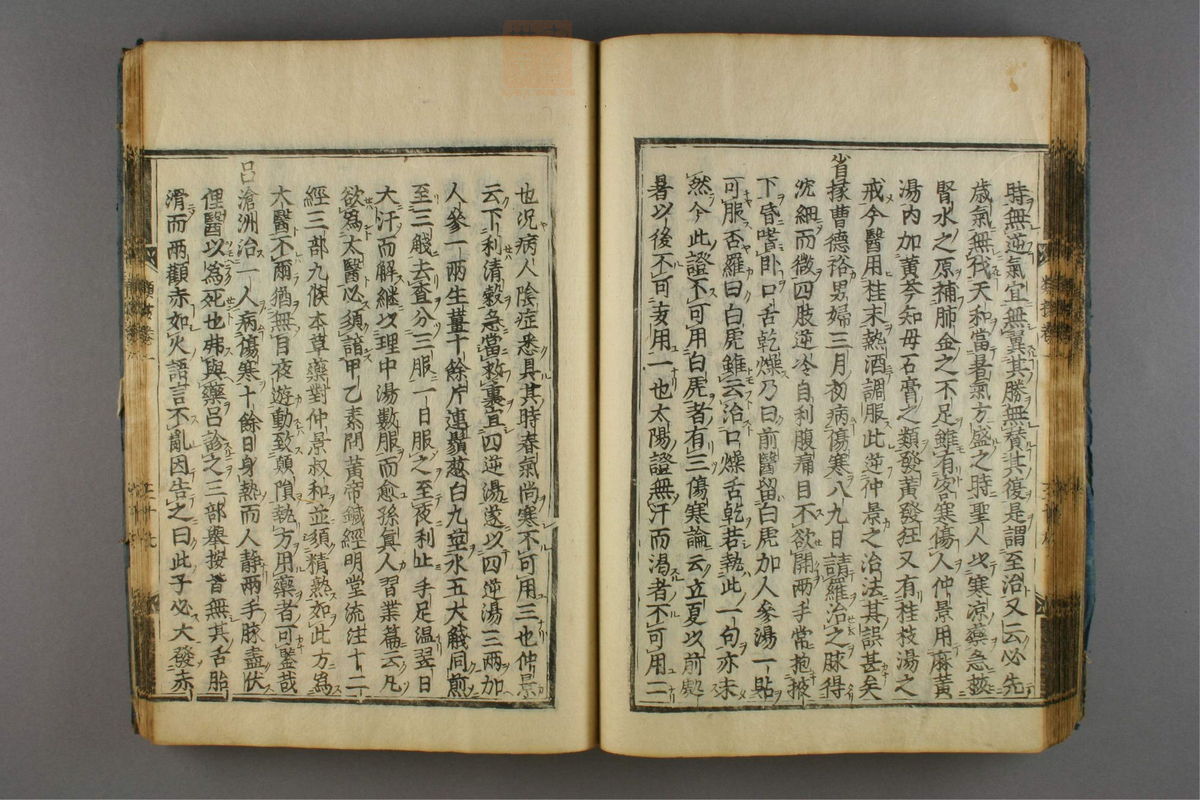 時無逆氣宜無翼其勝無賛其復是謂至治又云必先
歳氣無伐天和當暑氣方盛之時聖人以寒凉藥急救
腎水之原補肺金之不足雖有客寒傷人仲景用麻黄
湯内加黄芩知母石膏之類發黄發狂又有桂枝湯之
戒今醫用桂末熱酒調服此逆仲景之治法其誤甚矣
省掾曹德裕男婦三月初病傷寒八九日請羅治之脉得
沈細而微四肢逆冷自利腹痛目不欲開兩手常抱掖
下昏嗜卧口舌乾燥乃曰前醫留白虎加人參湯一貼
可服否羅曰白虎雖云治口燥舌乾若執此一句亦未
然今此證不可用白虎者有三傷寒論云立夏以前處
暑以後不可妄用一也太陽證無汗而渴者不可用二
也况病人陰症悉具其時春氣尚寒不可用三也仲景
云下利清穀急當救裏宜四逆湯遂以四逆湯三兩加
人參一兩生薑十餘片連鬚葱白九莖水五大盞同煎
至三盞去査分三服一日服之至夜利止手足温翌日
大汗而解継以理中湯數服而愈孫真人習業篇云凡
欲為太醫必須諳甲乙素問黄帝鍼經明堂流注十二
經三部九候本草藥對仲景叔和並須精熟如此方為
大醫不爾猶無目夜遊動致顛隕執方用藥者可鑒哉
呂滄洲治一人病傷寒十餘日身熱而人静兩手脉盡伏
俚醫以為死也弗與藥呂診之三部舉按皆無其舌胎
滑而兩顴赤如火語言不亂因告之曰此子必大發赤